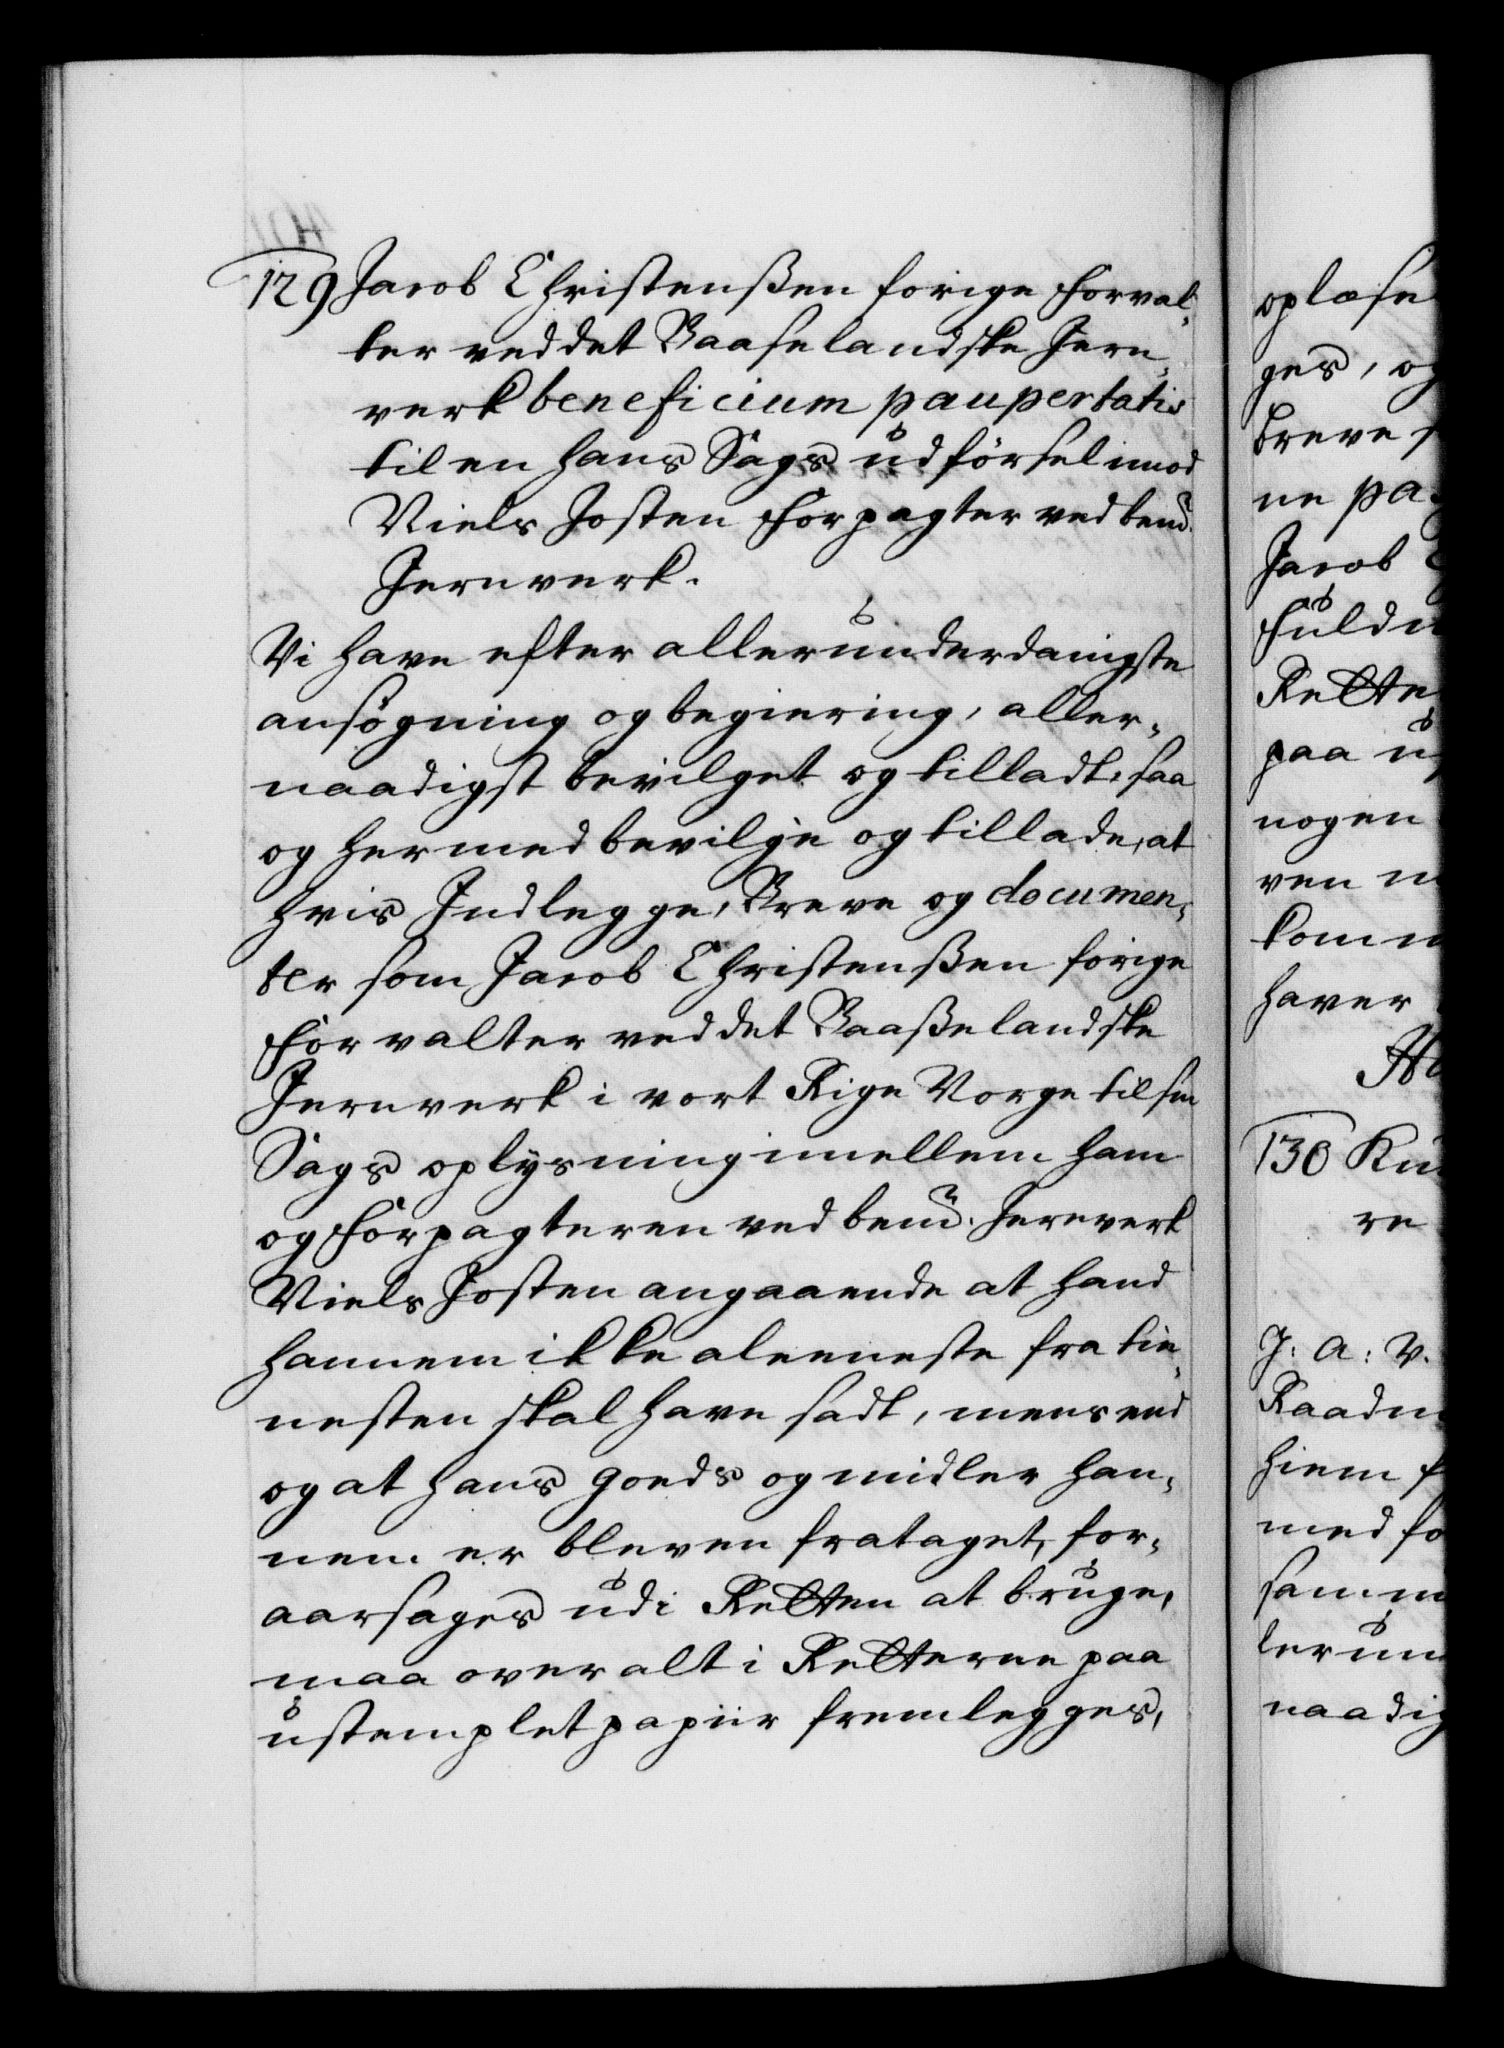 129 Jacob Christenßen forige Forval-
ter ved det Baaselandske Jern-
verk beneficium paupertatis
til en hans Sags udførsel imod
Niels Josten Forpagter ved bemd.
Jernverk.
Vi have efter allerunderdanigste
ansøgning og begiering, aller-
naadigst bevilget og tilladt, saa
og hermed bevilge og tillade, at
hvis Indlegge, Breve og documen-
ter som Jacob Christenßen forige
Forvalter ved det Baaßelandske
Jernverk i vort Rige Norge til sin
Sags oplysning imellem ham
og Forpagteren ved bemd. Jernverk
Niels Josten angaaende at hand
hannem ikke aleeneste fra tie-
nesten skal have sadt, mens end
og at hans goeds og midler han-
nem er bleven frataget, for-
aarsages udi Retten at bruge,
maa over alt i Retterne paa
ustemplet papiir fremlegges,
oplæse
ges, og
breve
ne pa
Jacob
Fuld
Rette
paa u
nogen
ven
komm
haver
130 Ku
re
J: A: V.
Raadm
hiem
med fo
samm
lerun
naadig